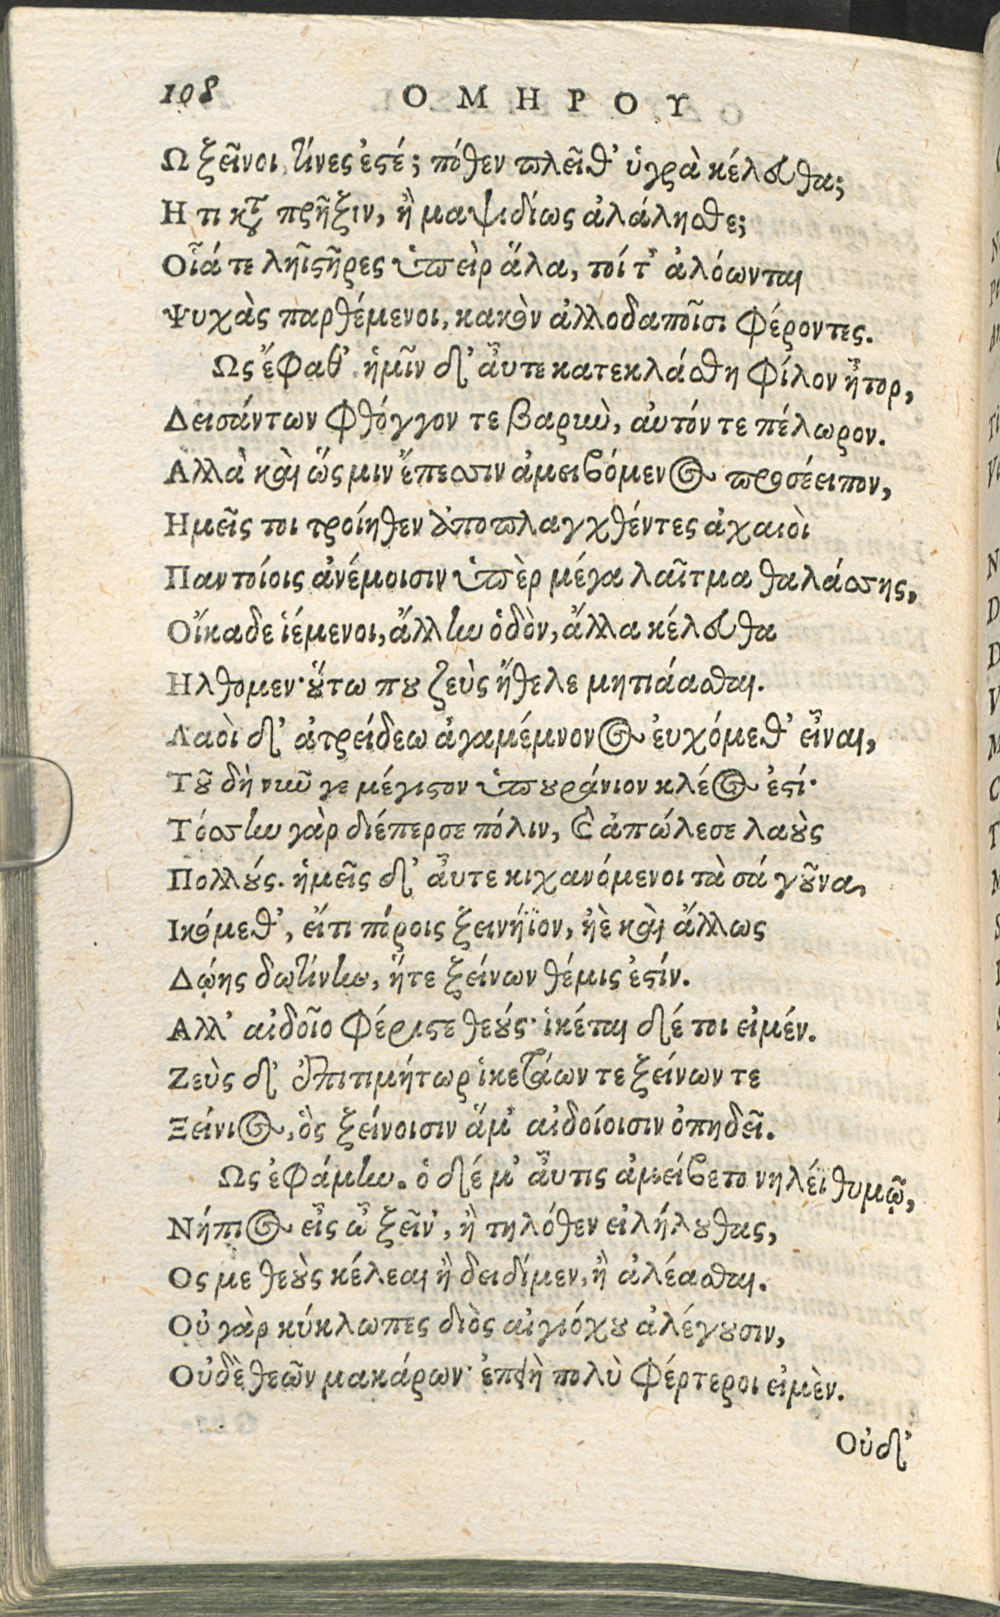 198 ΟΜΗΡΟΥ
Ω ξεῖνοι, τίνες ἐστέ; πόθεν πλεῖθ᾽ ὑγρὰ κέλευθα;
Η τι κατὰ πρῆξιν, ἢ μαψιδίως ἀλάλησθε;
Οἷά τε ληϊστῆρες ὑπεὶρ ἅλα, τοί τ᾽ ἀλόωνται
Ψυχὰς παρθέμενοι, κακὸν ἀλλοδαποῖσι φέροντες.
Ως ἔφαθ᾽, ἡμῖν δ᾽ αὖτε κατεκλάσθη φίλον ἦτορ,
Δεισάντων φθόγγον τε βαρὺν, αὐτόν τε πέλωρον.
Αλλὰ καὶ ὥς μιν ἔπεσσιν ἀμειβόμενος προσέειπον,
Ημεῖς τοι τροίηθεν ἀποπλαγχθέντες ἀχαιοὶ
Παντοίοις ἀνέμοισιν ὑπὲρ μέγα λαῖτμα θαλάσσης,
Οἴκαδε ἱέμενοι, ἄλλην ὁδὸν, ἄλλα κέλευθα
Ηλθομεν· οὕτω που ζεὺς ἤθελε μητιάασθαι.
Λαοὶ δ᾽ ἀτρείδεω ἀγαμέμνονος εὐχόμεθ᾽ εἶναι,
Τοῦ δὴ νῦν γε μέγιστον ὑπουράνιον κλέος ἐστί·
Τόσσην γὰρ διέπερσε πόλιν, καὶ ἀπώλεσε λαοὺς
Πολλούς. ἡμεῖς δ᾽ αὖτε κιχανόμενοι τὰ σά γοῦνα,
Ικόμεθ᾽, εἴτι πόροις ξεινήϊον, ἠὲ καὶ ἄλλως
Δῴης δωτίνην, ἥτε ξείνων θέμις ἐστίν.
Αλλ᾽ αἰδοῖο φέριστε θεούς· ἱκέται δέ τοι εἰμέν.
Ζεὺς δ᾽ ἐπιτιμήτωρ ἱκετάων τε ξείνων τε
Ξείνιος, ὃς ξείνοισιν ἅμ᾽ αἰδοίοισιν ὀπηδεῖ.
Ως ἐφάμην. ὁ δέ μ᾽ αὖτις ἀμείβετο νηλέϊ θυμῷ,
Νήπιος εἶς ὦ ξεῖν᾽, ἢ τηλόθεν εἰλήλουθας,
Ος με θεοὺς κέλεαι ἢ δειδίμεν, ἢ ἀλέασθαι.
Οὐ γὰρ κύκλωπες διὸς αἰγιόχου ἀλέγουσιν,
Οὐδὲ θεῶν μακάρων· ἐπειὴ πολὺ φέρτεροι εἰμὲν.
Οὐδ᾽